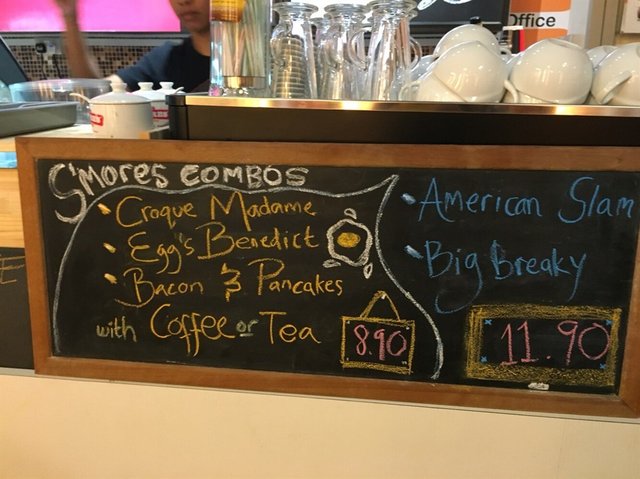 Office
S'mores COMBOS
Croque Madame
Egg's Benedict
Bacon & Pancakes
with Coffee or Tea
8.90
American Slam
Big Breaky
11.90